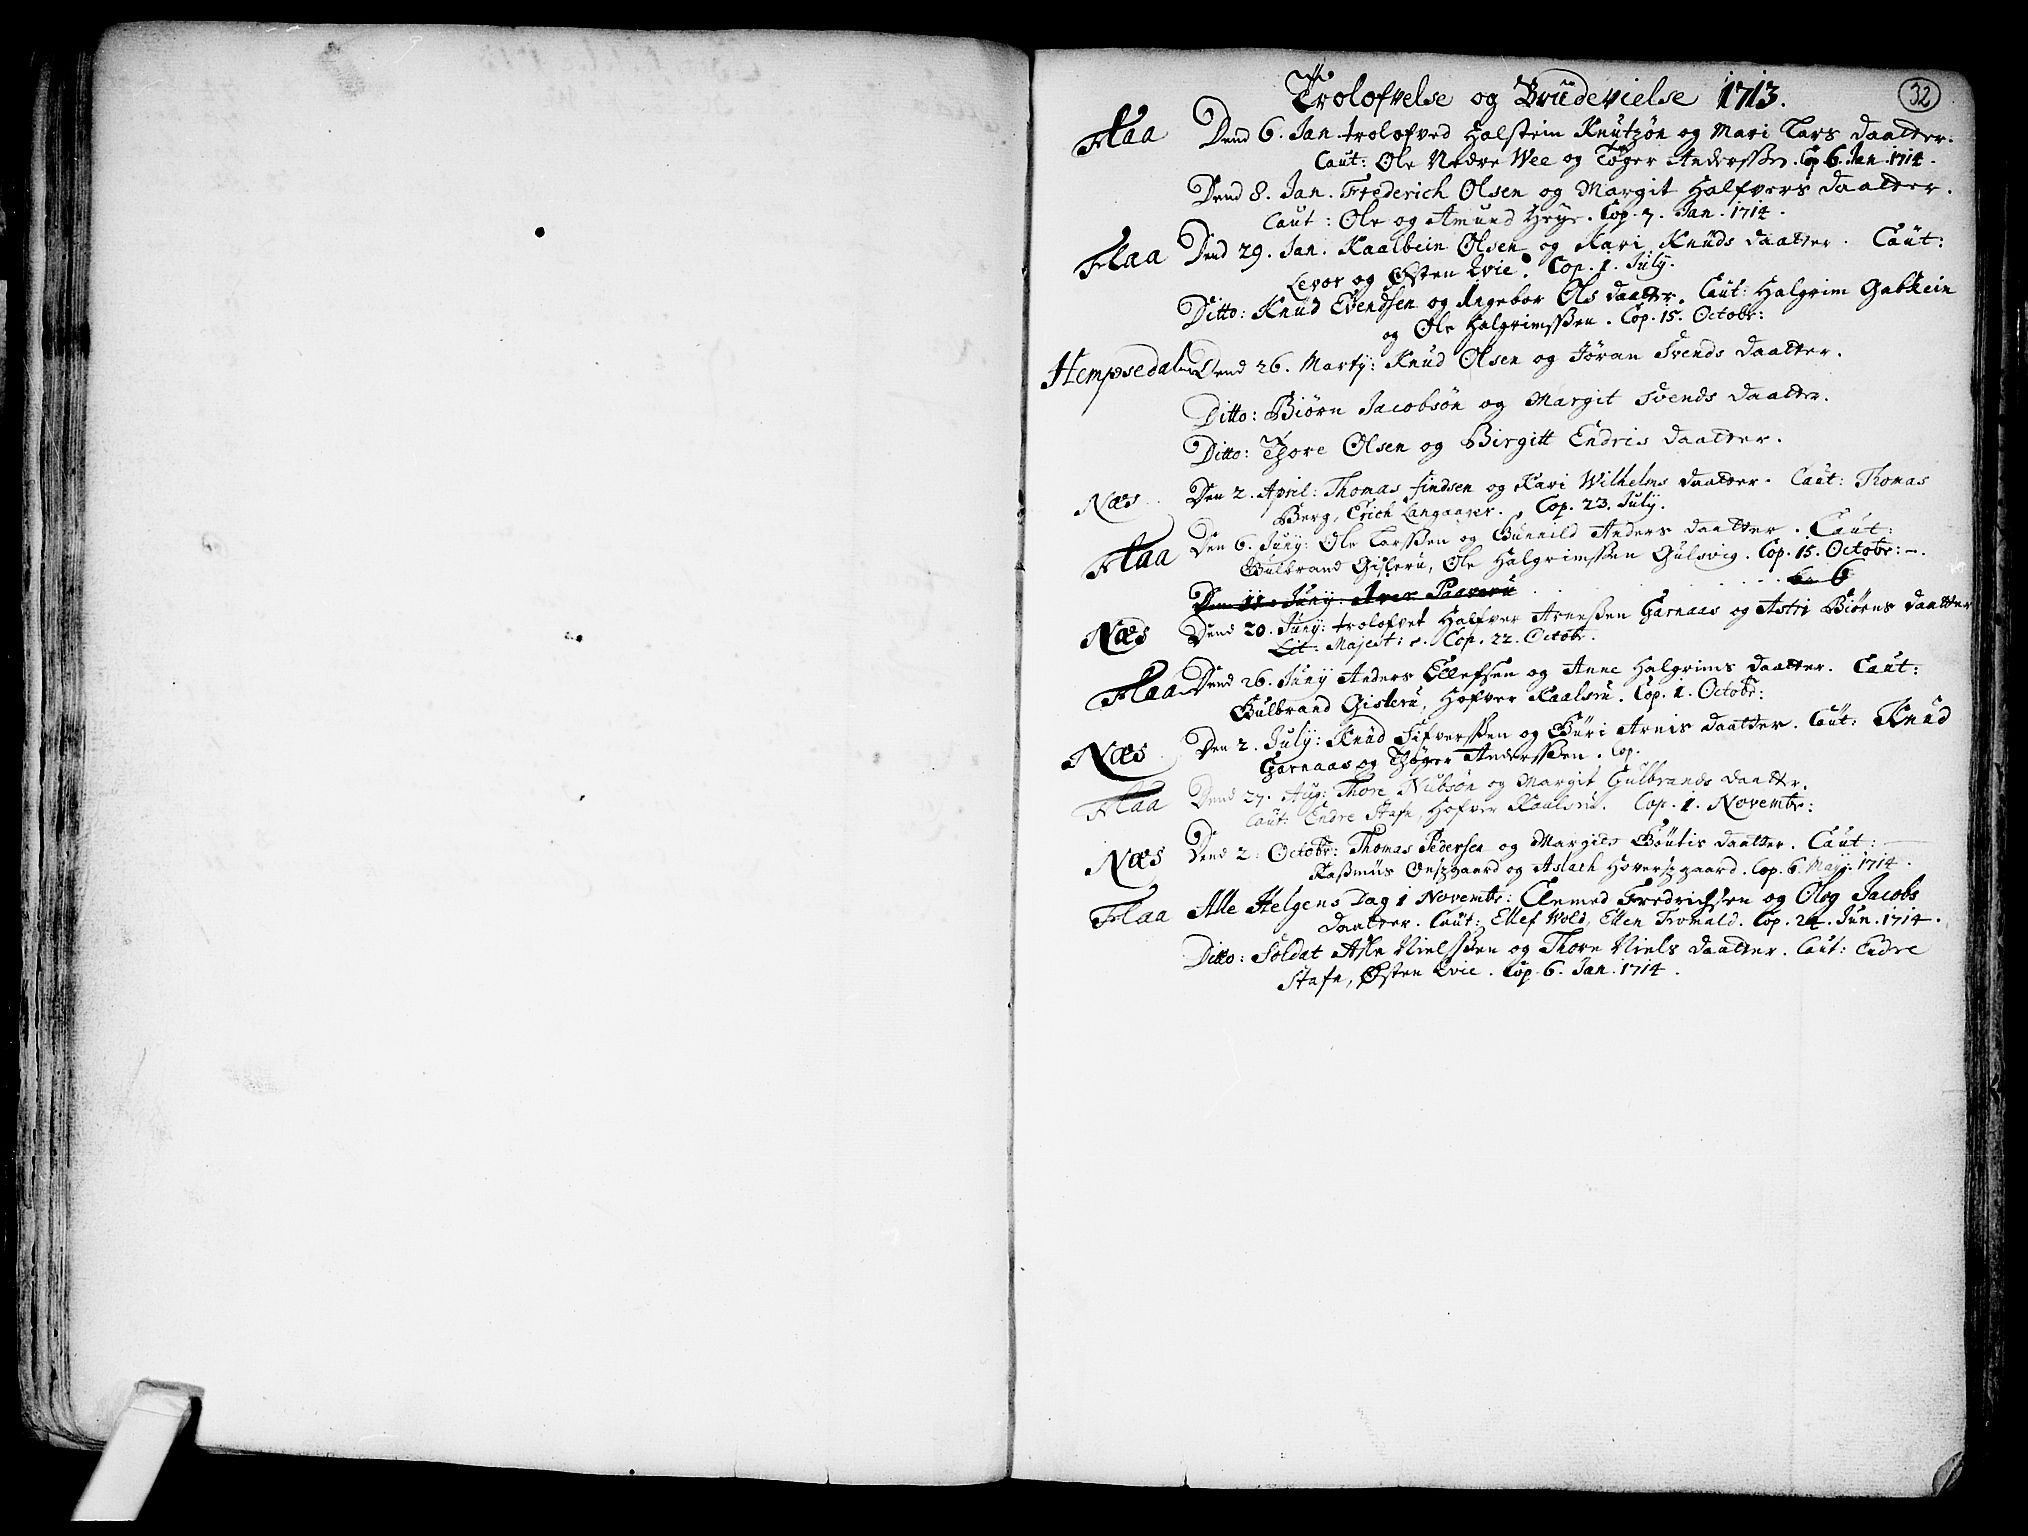 Trolofvelse og Brüdevielse 1713.
32
Flaa Dend 6. Jan trolofved Halstein Knutzøn og Mari Lars daatter.
Caut: Ole Nedre Wee og Tøger Anderssen. Cop 6. Jan 1714.
Dend 8. Jan. Frederich Olsen og Margit Halfvors daatter.
Caut: Ole og Amund Heje. Cop. 7. Jan. 1714.
Flaa Dend 29. Jan. Kaalbein Olsen og Kari Knüds daatter. Caüt:
Levor og Østen Evie. Cop. 1. July.
Ditto: Knüd Evendsen og Ingebor Ols daatter. Caüt: Halgrim Gabkein
og Ole Halgrimssen. Cop. 15. Octobr:
Hempsedalen Dend 26. Marty: Knud Olsen og Jøran Svends daatter.
Ditto: Biørn Jacobsøn og Margit Svends daatter.
Ditto: Thore Olsen og Birgitt Endris daatter.
Næs Den 2. April: Thomas Findsen og Kari Wilhelms daatter. Caut: Thomas
Berg, Erich Langaarer. Cop. 23. July.
Flaa Den 6. Juny: Ole Larssen og Gunnild Anders daatter. Caüt:
Gulbrand Gislerü, Ole Halgrimssen Gülsvig. Cop. 15. Octobr: -.
Den 11. Juny: Iver Paaverü
Næs Dend 20. Juny: trolofvet Halfver Arnessen Garnaas og Astri Biørns daatter
Lit: Majest: Cop. 22. Octobr.
Flaa Dend 26. Juny Anders Ellefsen og Anne Halgrims daatter. Caüt:
Gulbrand Gislerü, Hofver Kaalsrü. Cop. 1. Octobr:
Næs Den 2. July: Knüd Sifverssen og Güri Arnis daatter. Caüt: Knüd
Garnaas og Thøger Anderssen. Cop.
Flaa Dend 27. Aug: Thore Nübsøn og Margit Gulbrands daatter.
Caut: Endre Stafn, Hofver Kaalsrü. Cop. 1. Novembr:
Næs Dend 2. Octobr: Thomas Pedersen og Margite Goütis daatter. Caüt:
Rasmüs Onsgaard og Aslach Hoversgaard. Cop. 6. Maij. 1714.
Flaa Alle Helgens Dag 1 Novembr: Clemed Fredrichsen og Olog Jacobs
daatter. Caüt: Ellef Wold, Ellen Tronald. Cop. 24. Jun. 1714.
Ditto: Soldat Asle Nielssen og Thore Niels daatter. Caut: Endre
Stafn, Østen Evie. Cop. 6. Jan. 1714.